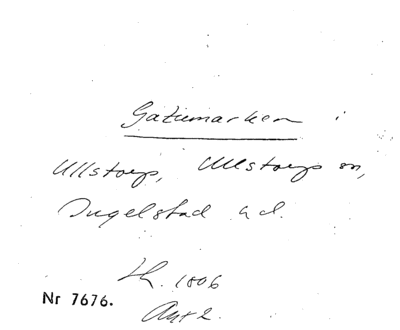 Gatumarken i
Ullstorp, Ullstorps sn,
Ingelstad hd.
1806
Nr 7676.
Akt 2.